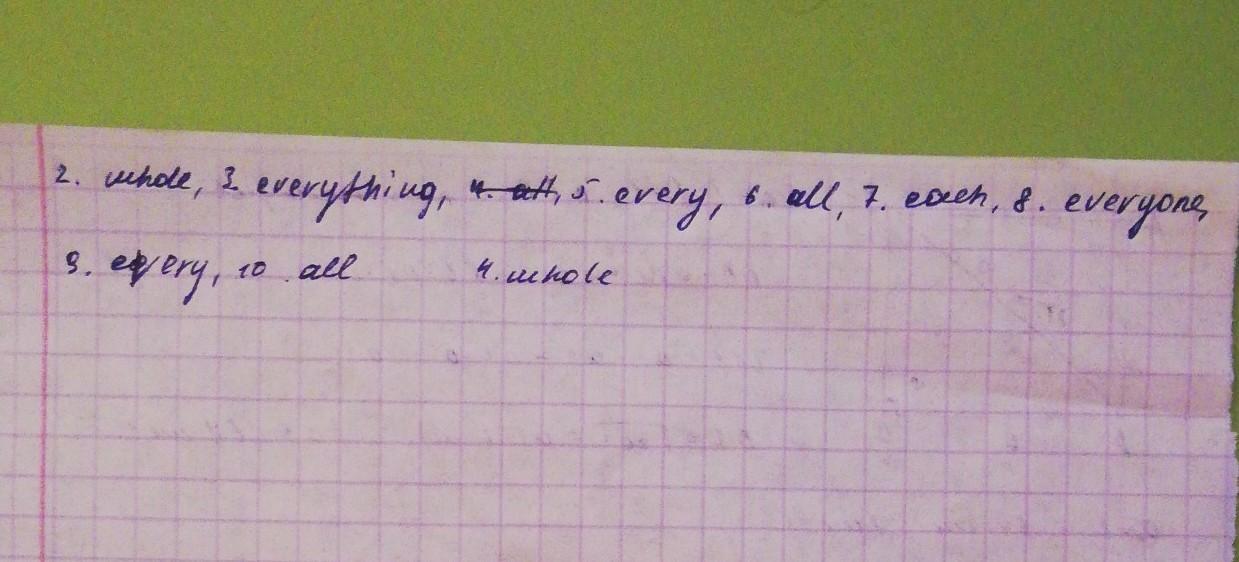 2. whole, 3. everything, 4. all, 5. every, 6. all, 7. each, 8. everyone,
9. every, 10. all 4. whole